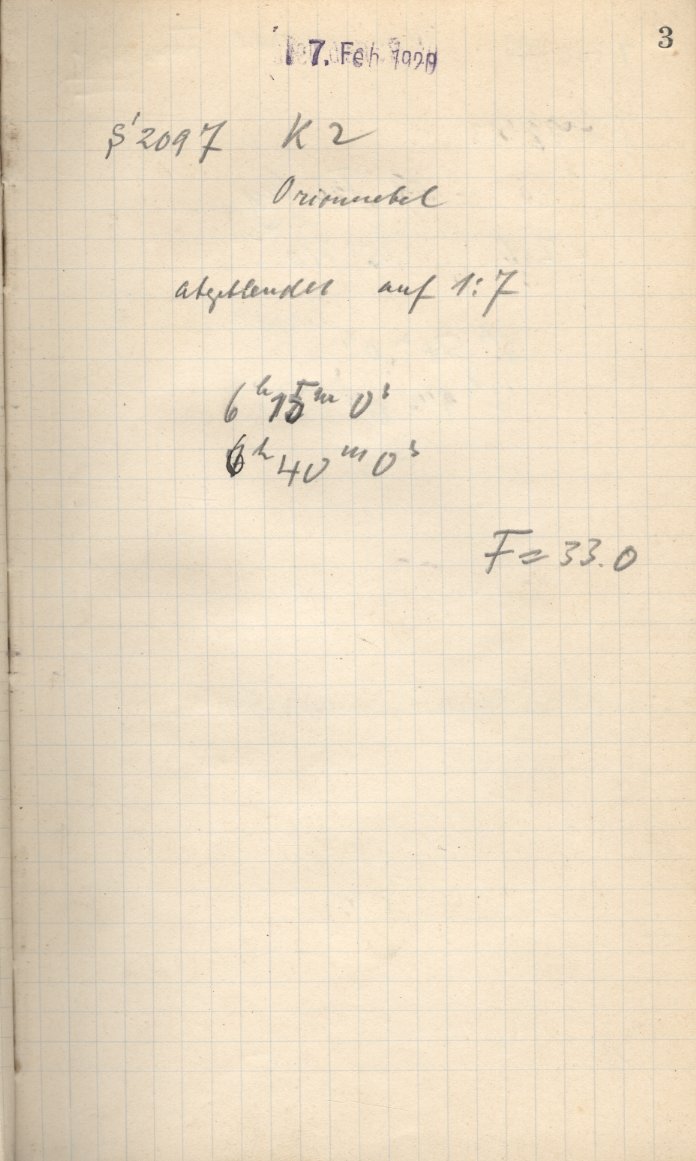 3
7. Feb. 1929
2097 K 2
Orionnebel
abgeblendet auf 1:7
6h 15m 0s
6h 40m 0s
F = 33.0